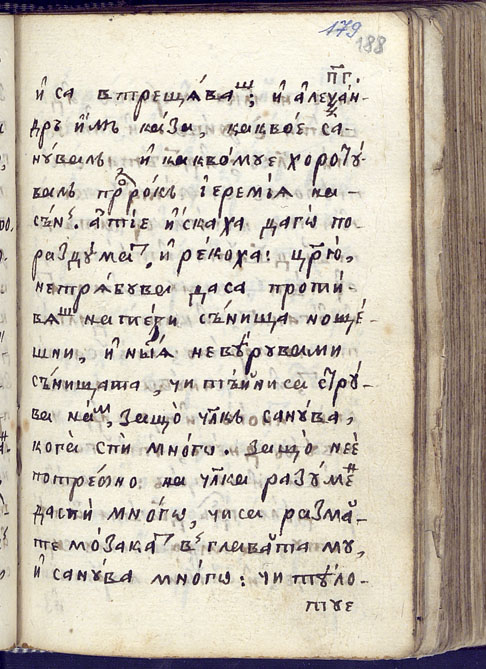 179
188
п҃г.
и҆ са втрещѧ́ваш; и҆ а҆леѯан-
дръ и҆́мъ ка́за, какво̀е са-
нꙋ́валъ и҆ какво̀мꙋе хоротꙋ́-
валъ прⷪ҇рокъ і҆еремі́ѧ на-
сън. а҆ ті́е и҆́скаха да гѡ по-
раздꙋ́мат, и҆ ре́коха: цр҃ю̀,
не трѧ́бꙋва да са проти́-
вѧш на те́ѕи съ́нища ноще́-
шни, и҆ ны́ѧ не вѵ́рꙋвами
съ́нищата, чи тъ́й ни са стрꙋ́-
ва на́м, защо̀ чл҃къ санꙋ́ва,
кога̀ спѝ мно́гѡ. защо̀ нее́
потре́бно на чл҃ка разꙋ́мен
да спѝ мно́гѡ, чи са разма́-
те мо́зака́т в глава́та мꙋ,
и҆ санꙋ́ва мно́гѡ: чи тѵ́ло-
тꙋе